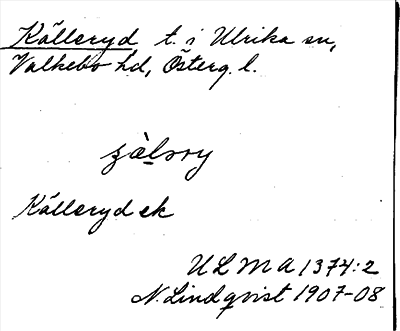 Källeryd t. i Ulrika sn,
Valkebo hd, Österg. l.
Källeryd ek
ULMA 1374:2
N. Lindqvist 1907-08